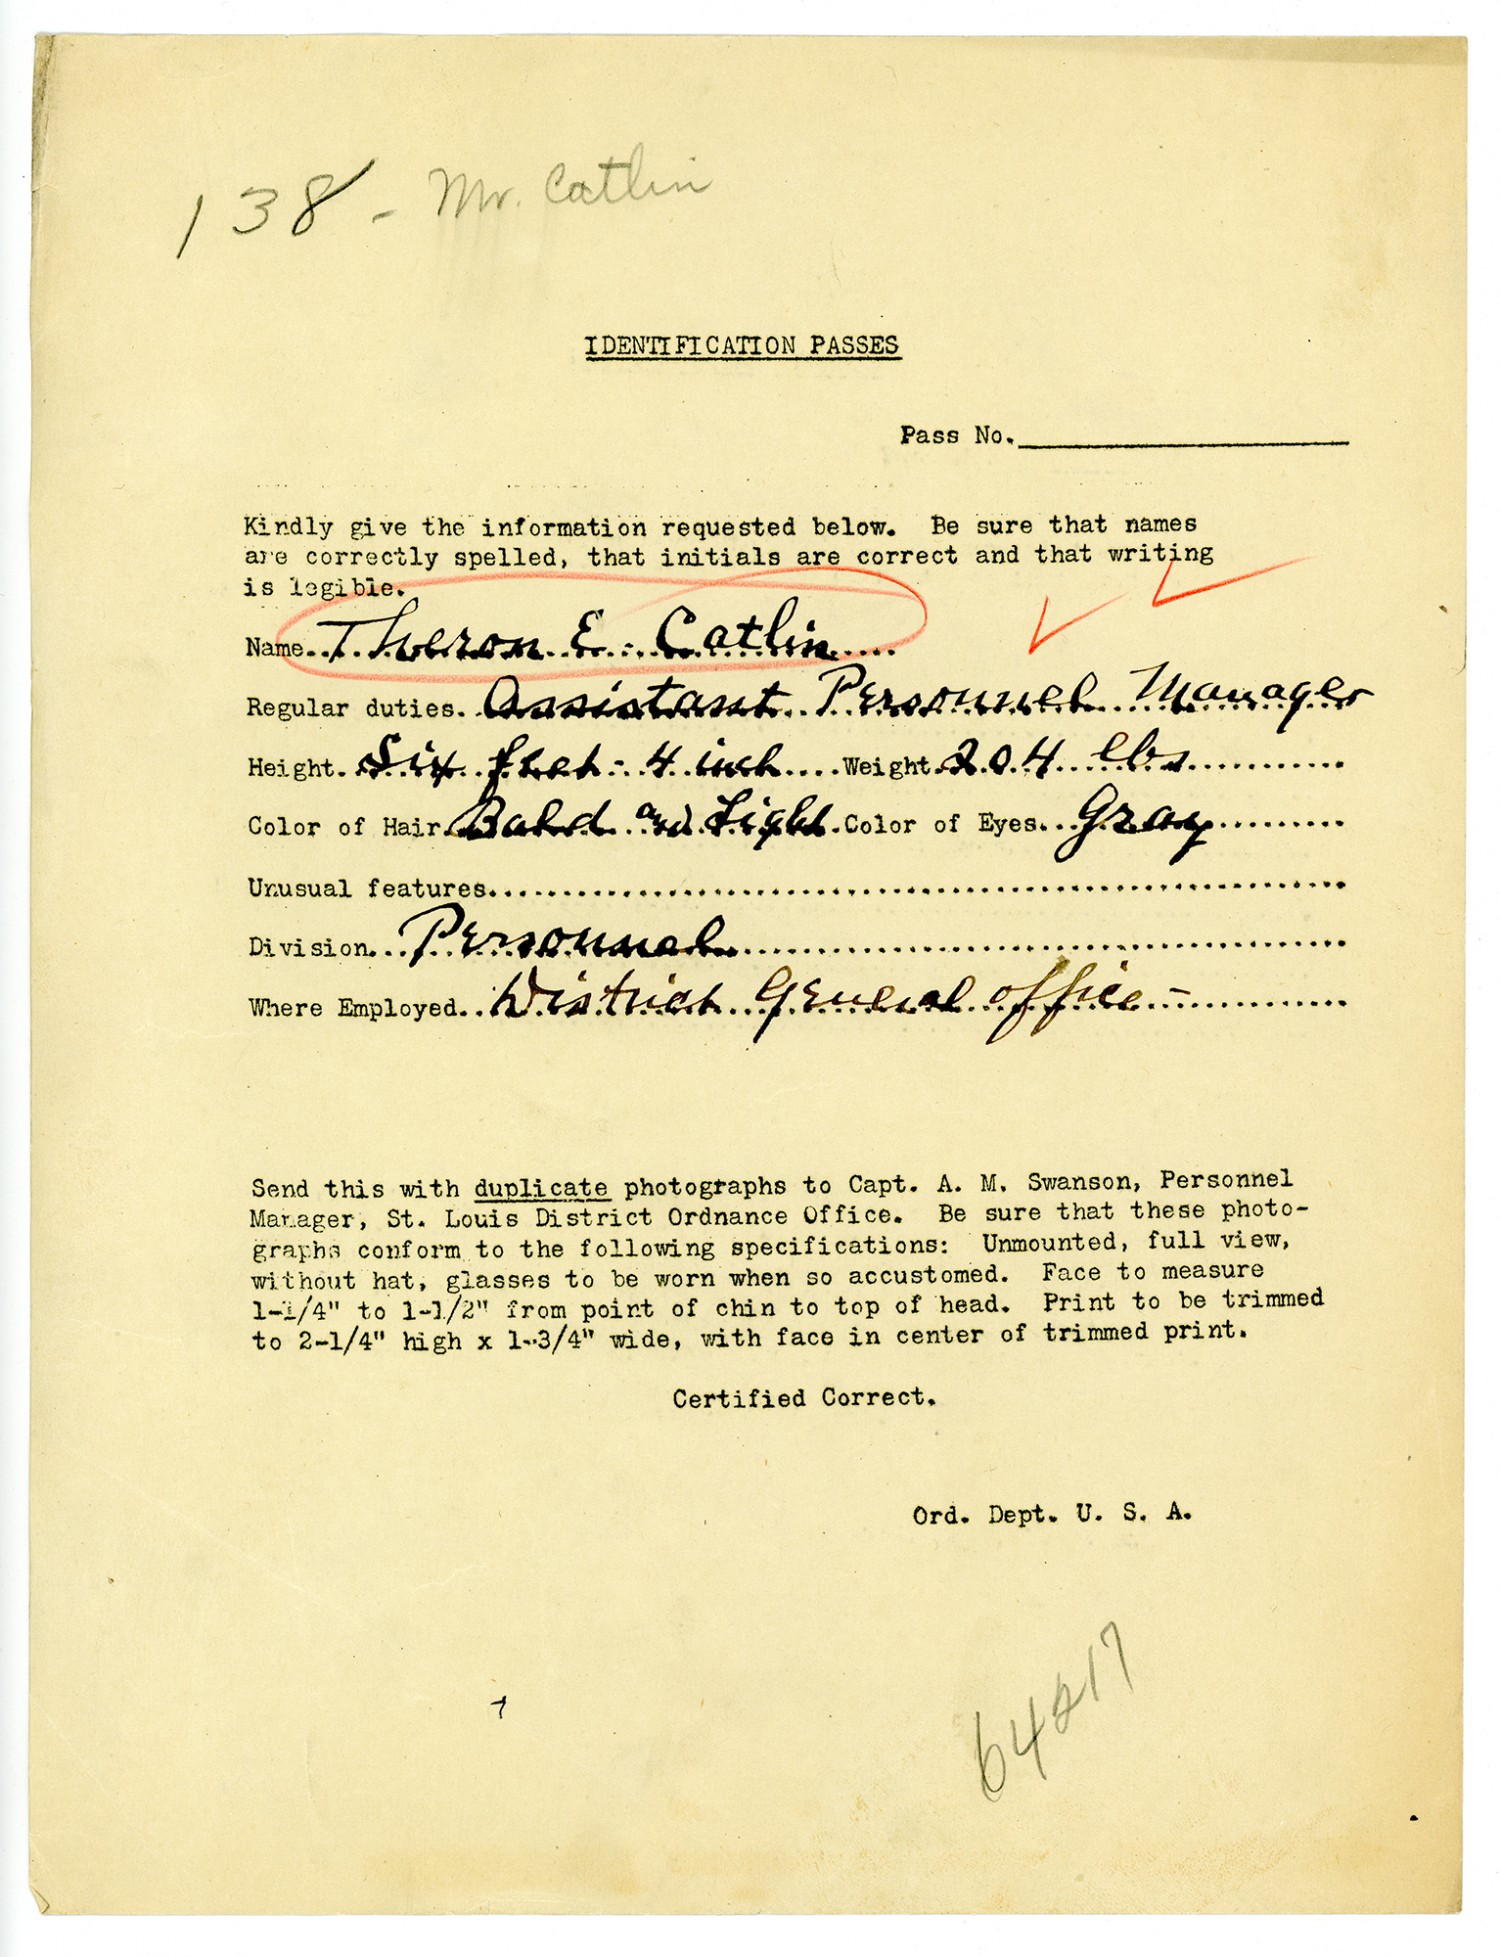 138 - Mr. Catlin
IDENTIFICATION PASSES
Pass No.
Kindly give the information requested below. Be sure that names
are correctly spelled, that initials are correct and that writing
is legible.
Name Theron E. Catlin
Regular duties. Assistant Personnel Manager
Height. Six feet - 4 inch Weight. 204 lbs
Color of Hair Bald and Light Color of Eyes. Gray
Unusual features
Division Personnel
Where Employed. District General Office -
Send this with duplicate photographs to Capt. A. M. Swanson, Personnel
Manager, St. Louis District Ordnance Office. Be sure that these photo-
graphs conform to the following specifications: Unmounted, full view,
without hat, glasses to be worn when so accustomed. Face to measure
1-1/4" to 1-1/2" from point of chin to top of head. Print to be trimmed
to 2-1/4" high x 1-3/4" wide, with face in center of trimmed print.
Certified Correct.
Ord. Dept. U. S. A.
64217